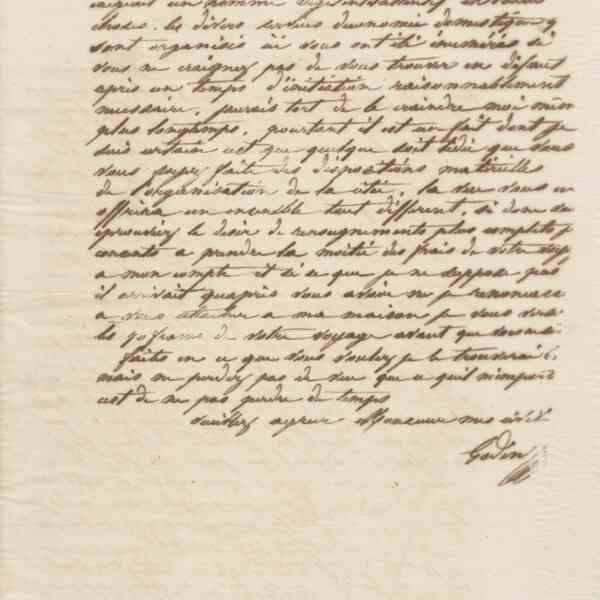 acquiert un homme
choses. les divers services d'économie domestique y
sont organisés ici vous ont été énumérés si
vous ne craignez pas de vous trouver en défaut
après un temps d'initiation raisonnablement
nécessaire, j'aurais tort de le craindre moi même
plus longtemps, pourtant il est un fait dont je
suis certain c'est que quelque soit l'idée que vous
vous soyez faite des dispositions matérielles
de l'organisation de la cité, la vue vous en
offrira un ensemble tout différent, si donc vous
éprouviez le désir de renseignements plus complets je
consents a prendre la moitié des frais de votre
a mon compte et si ce que je ne suppose pas
il arrivait qu'après vous avoir vu je renonçasse
a vous attacher a ma maison je vous
les 70 francs de votre voyage avant que vous
faites en ce que vous voulez je le trouverai
mais ne perdez pas de vue que ce qu'il m'importe
c'est de ne pas perdre de temps
Veuillez agréer Monsieur mes civil
Godin